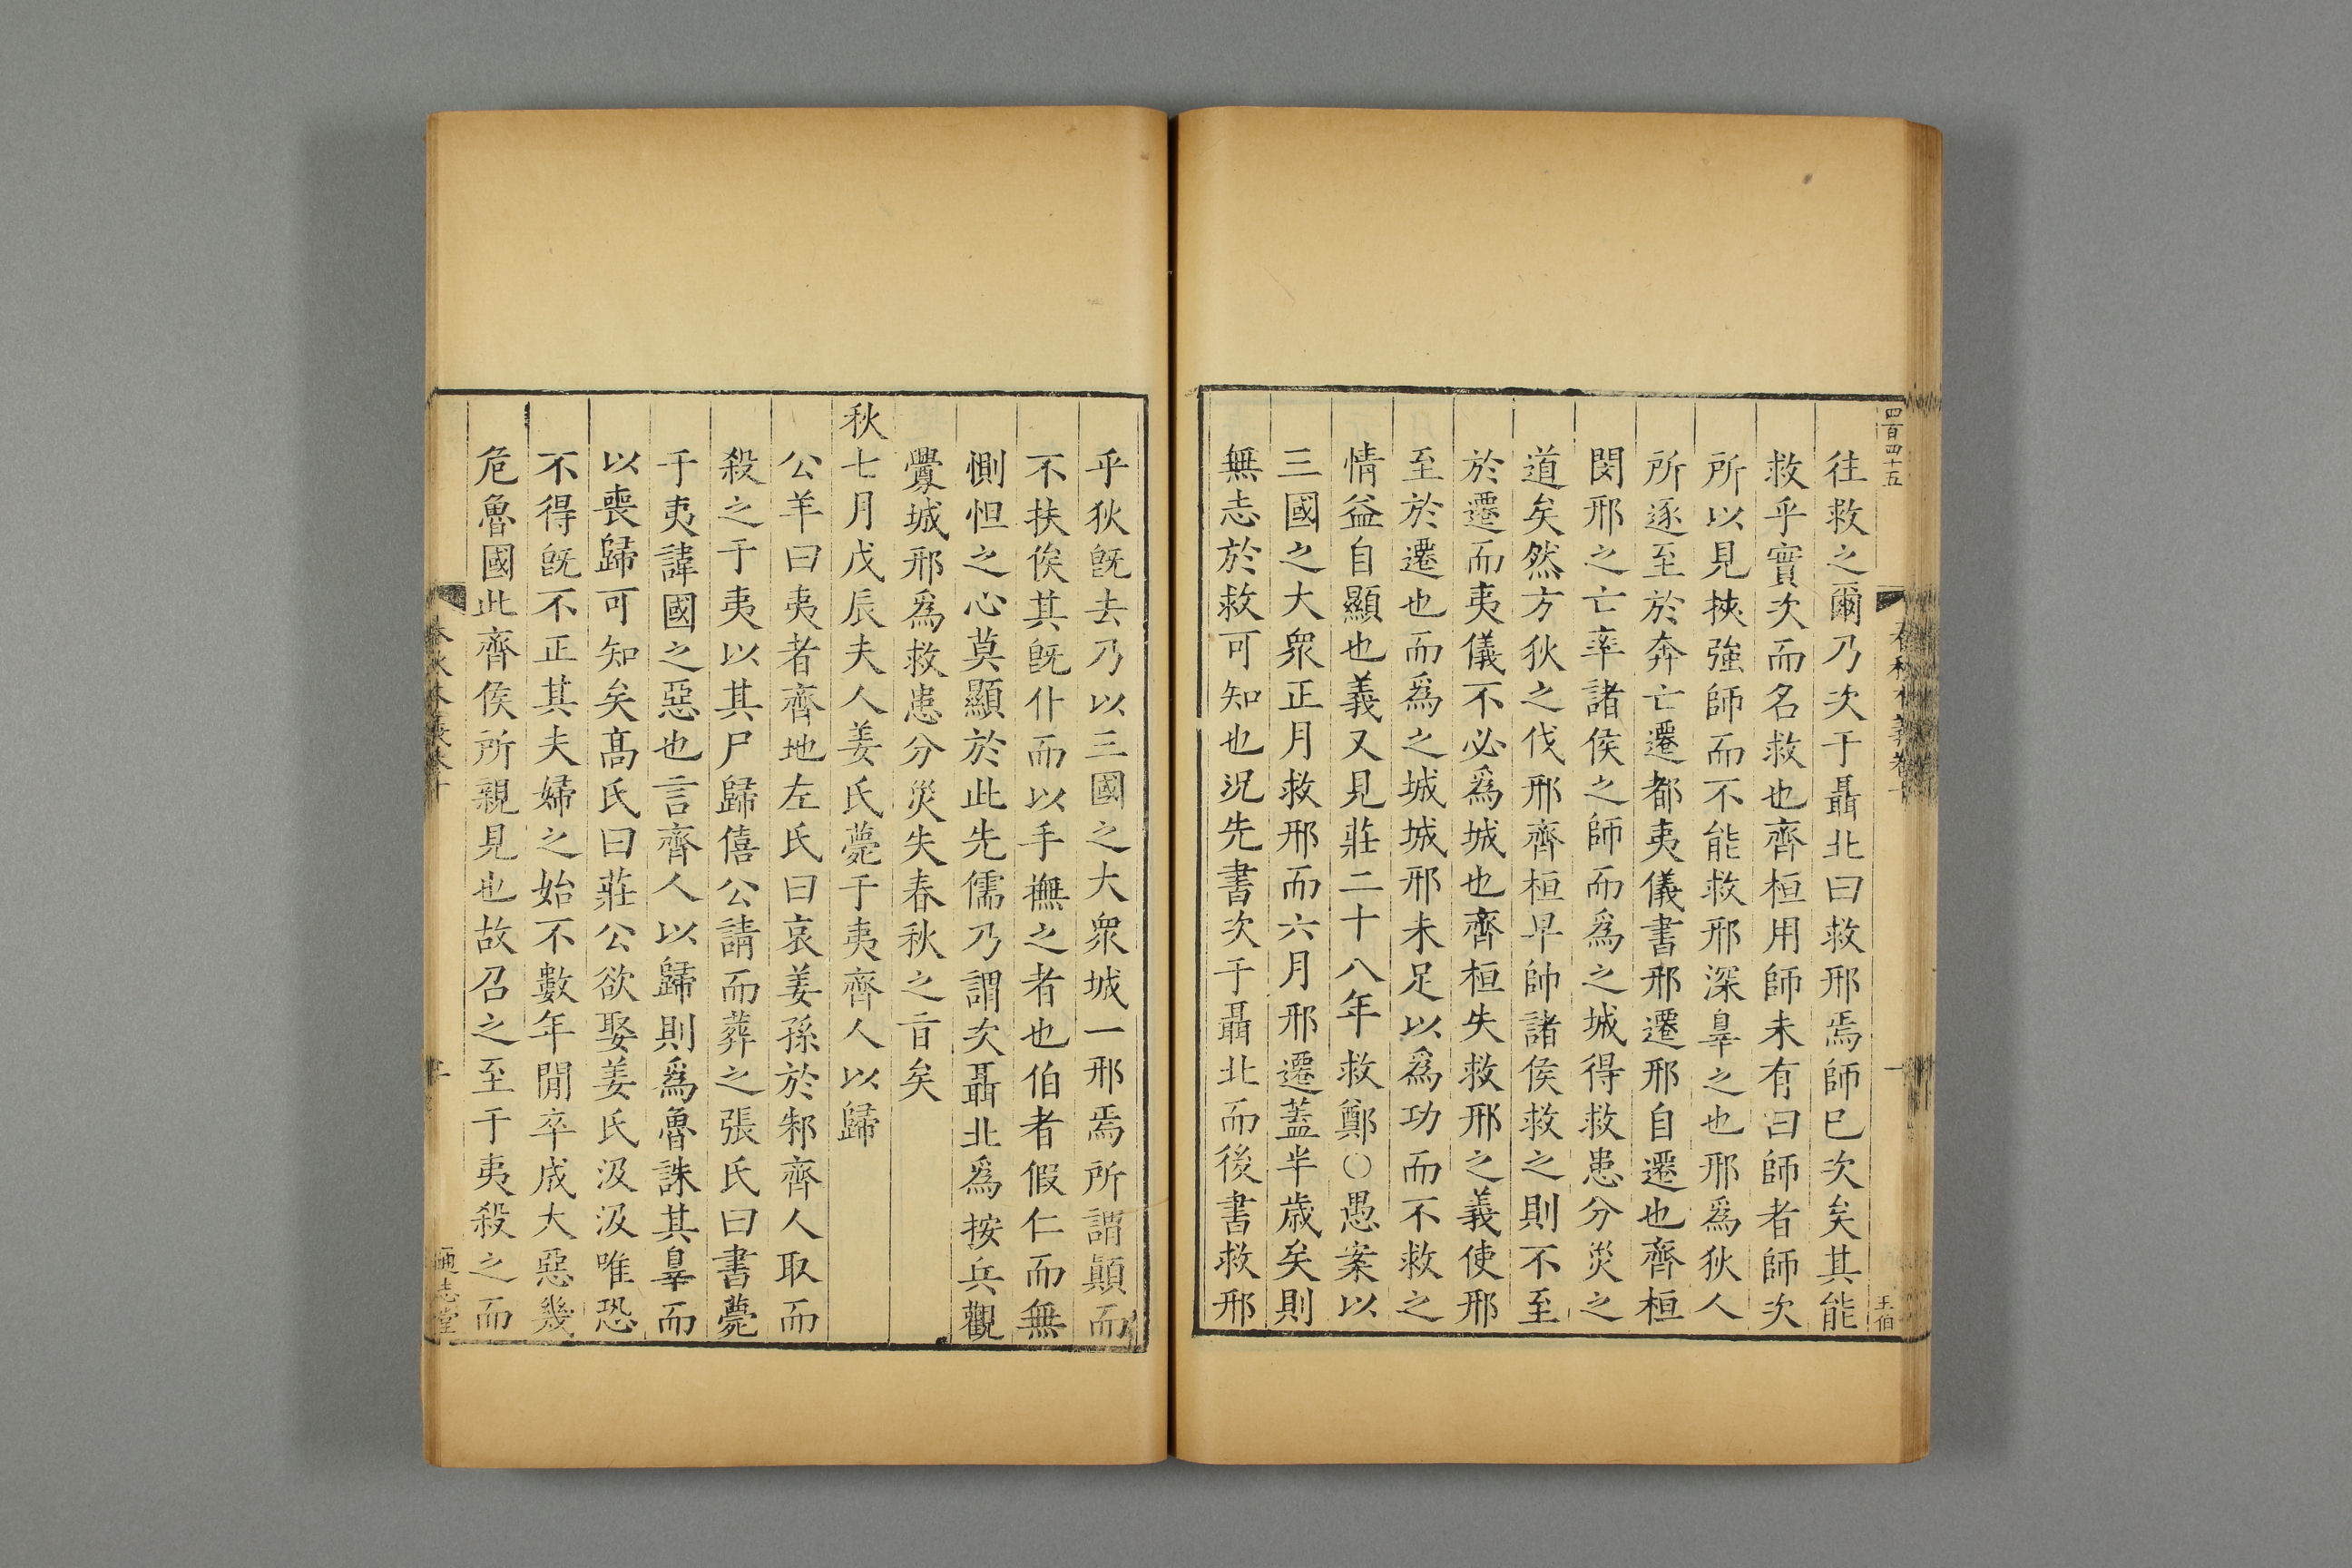 四百四十五
王伯
往救之爾乃次于聶北曰救邢焉師已次矣其能
救乎實次而名救也齊桓用師未有曰師者師次
所以見挾強師而不能救邢深辠之也邢爲狄人
所逐至於奔亡遷都夷儀書邢遷邢自遷也齊桓
閔邢之亡率諸侯之師而爲之城得救患分災之
道矣然方狄之伐邢齊桓早帥諸侯救之則不至
於遷而夷儀不必爲城也齊桓失救邢之義使邢
至於遷也而爲之城城邢未足以爲功而不救之
情益自顯也義又見莊二十八年救鄭○愚案以
三國之大衆正月救邢而六月邢遷蓋半歲矣則
無志於救可知也況先書次于聶北而後書救邢
乎狄旣去乃以三國之大衆城一邢焉所謂顚而
不扶俟其旣仆而以手撫之者也伯者假仁而無
惻怛之心莫顯於此先儒乃謂次聶北爲按兵觀
釁城邢爲救患分災失春秋之旨矣
秋七月戊辰夫人姜氏薨于夷齊人以歸
公羊曰夷者齊地左氏曰哀姜孫於邾齊人取而
殺之于夷以其尸歸僖公請而葬之張氏曰書薨
于夷諱國之惡也言齊人以歸則爲魯誅其辠而
以喪歸可知矣髙氏曰莊公欲娶姜氏汲汲唯恐
不得旣不正其夫婦之始不數年閒卒成大惡幾
危魯國此齊侯所親見也故召之至于夷殺之而
通志堂